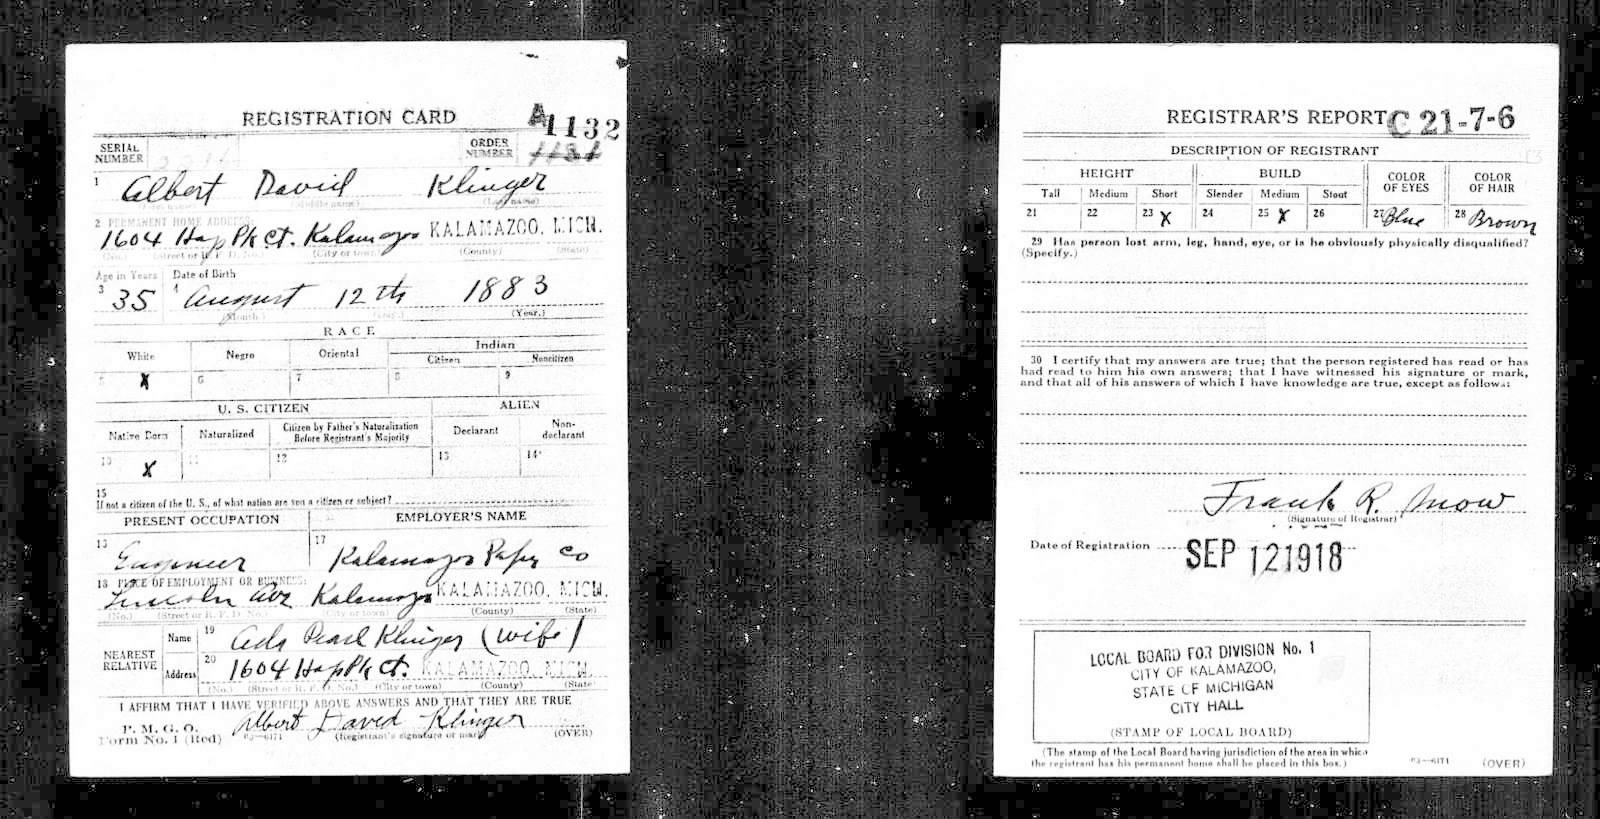 REGISTRATION CARD
A 1132
SERIAL NUMBER
ORDER NUMBER 1131
1 Albert David Klinger
(Middle name) (Last name)
2 PERMANENT HOME ADDRESS:
1604 Hays Pk Ct. Kalamazoo KALAMAZOO, MICH.
(No.) (Street or R. F. D. No.) (City or town) (County) (State)
Age in Years Date of Birth
3 35 4 August 12th 1883
(Month.) (Day.) (Year.)
RACE
White Negro Oriental Indian
Citizen Noncitizen
5 X 6 7 8 9
U. S. CITIZEN ALIEN
Native Born Naturalized Citizen by Father's Naturalization Before Registrant's Majority Declarant Non-declarant
10 X 11 12 13 14
15
If not a citizen of the U. S., of what nation are you a citizen or subject?
PRESENT OCCUPATION EMPLOYER'S NAME
16 Engineer 17 Kalamazoo Paper Co
18 PLACE OF EMPLOYMENT OR BUSINESS:
Lincoln Ave Kalamazoo KALAMAZOO, MICH.
(No.) (Street or R. F. D. No.) (City or town) (County) (State)
NEAREST RELATIVE
Name 19 Ada Pearl Klinger (wife)
Address 20 1604 Hays Pk Ct. KALAMAZOO, MICH.
(No.) (Street or R. F. D. No.) (City or town) (County) (State)
I AFFIRM THAT I HAVE VERIFIED ABOVE ANSWERS AND THAT THEY ARE TRUE
P. M. G. O.
Form No. 1 (Red) 03—6171 Albert David Klinger
(Registrant's signature or mark) (OVER)
REGISTRAR'S REPORT C 21-7-6
DESCRIPTION OF REGISTRANT
HEIGHT BUILD COLOR OF EYES COLOR OF HAIR
Tall Medium Short Slender Medium Stout
21 22 23 X 24 25 X 26 27 Blue 28 Brown
29 Has person lost arm, leg, hand, eye, or is he obviously physically disqualified?
(Specify.)
30 I certify that my answers are true; that the person registered has read or has
had read to him his own answers; that I have witnessed his signature or mark,
and that all of his answers of which I have knowledge are true, except as follows:
Frank R. Mow
(Signature of Registrar)
Date of Registration SEP 12 1918
LOCAL BOARD FOR DIVISION No. 1
CITY OF KALAMAZOO,
STATE OF MICHIGAN
CITY HALL
(STAMP OF LOCAL BOARD)
(The stamp of the Local Board having jurisdiction of the area in which
the registrant has his permanent home shall be placed in this box.)
03—6171 (OVER)